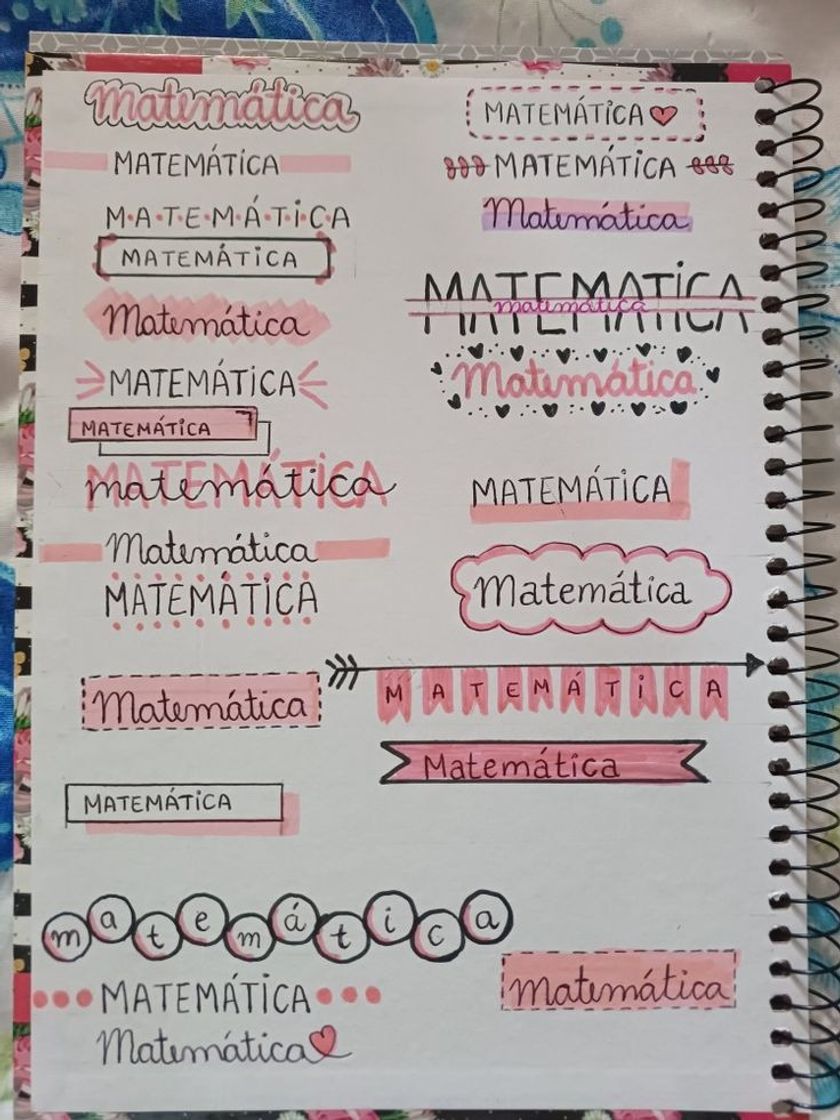 Matemática
MATEMÁTICA
M·A·T·E·M·Á·T·i·C·A
MATEMÁTICA
Matemática
MATEMÁTICA
MATEMÁTICA
MATEMÁTICA
matemática
Matemática
MATEMÁTICA
Matemática
MATEMÁTICA
matemática
MATEMÁTICA
Matemática
MATEMÁTICA
MATEMÁTICA
Matemática
MATEMATICA
matemática
Matemática
MATEMÁTICA
Matemática
MATEMÁTICA
Matemática
Matemática